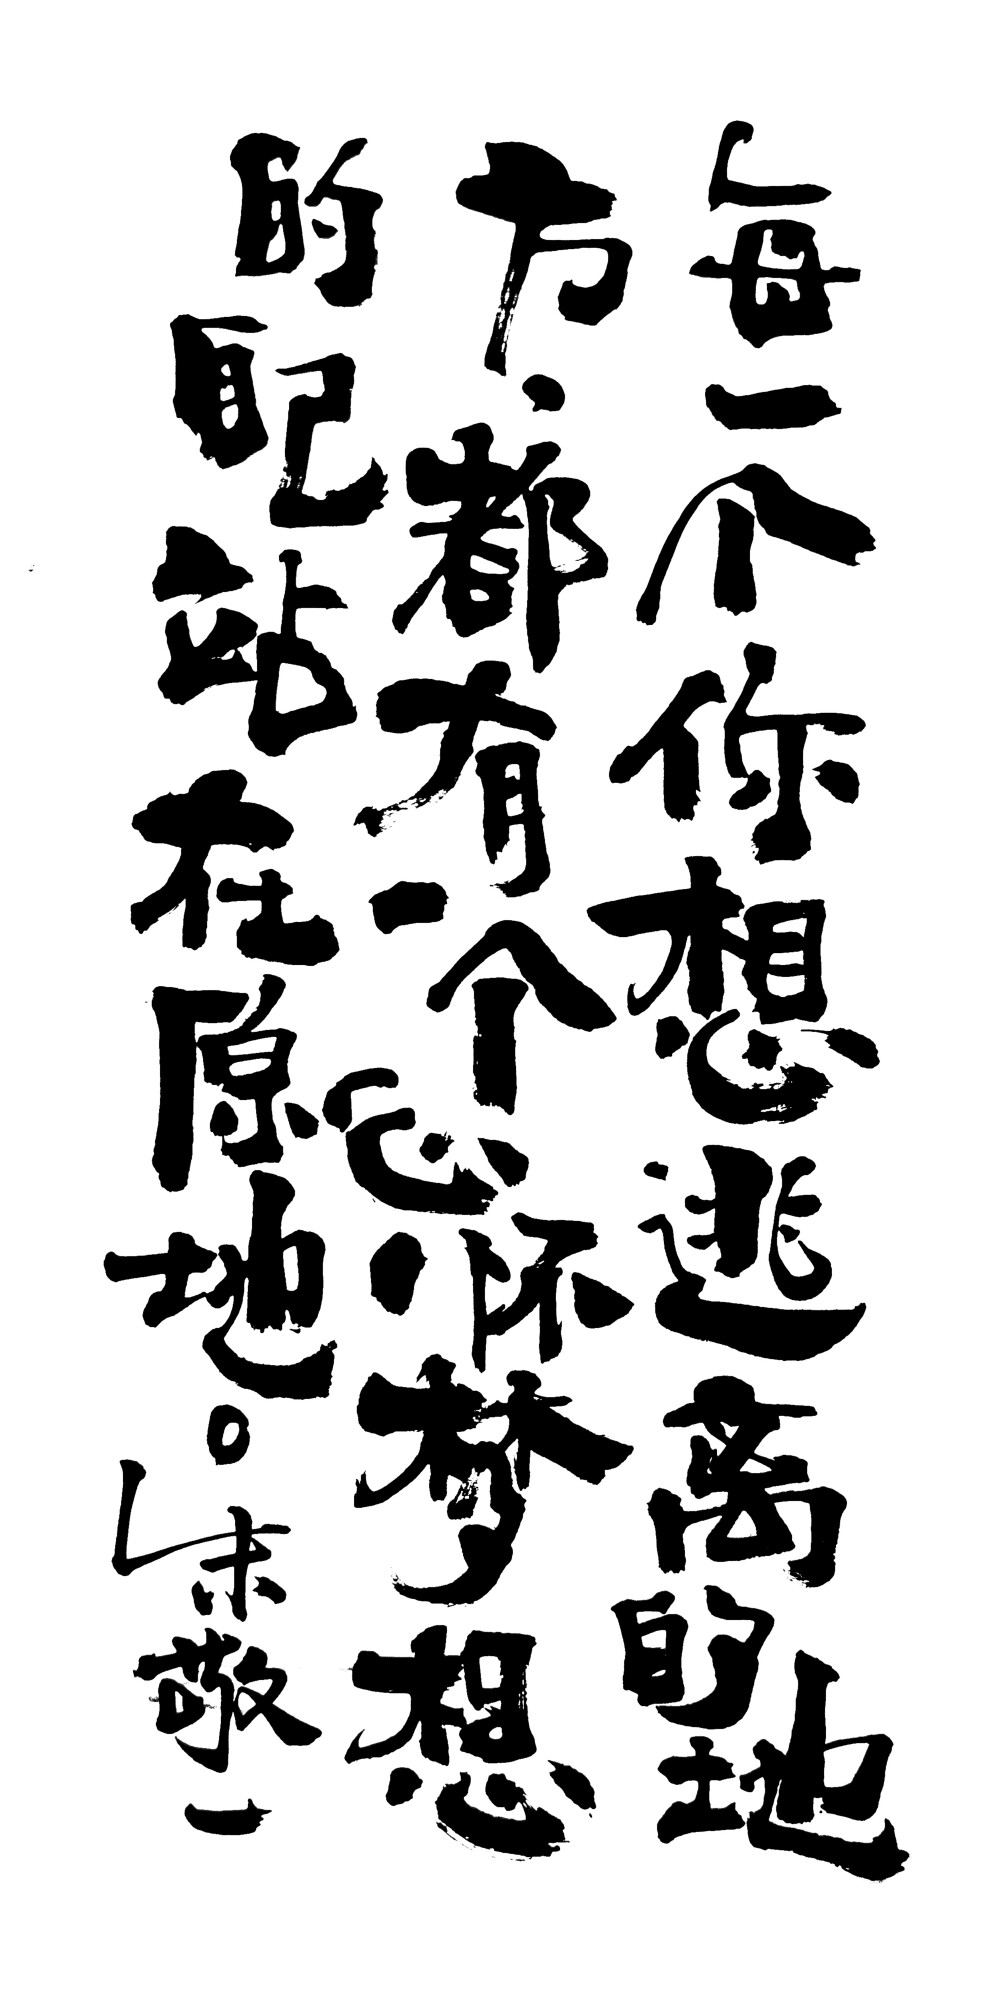 每一个你想逃离的地
方，都有一个心怀梦想
的配站在原地。朱敬一